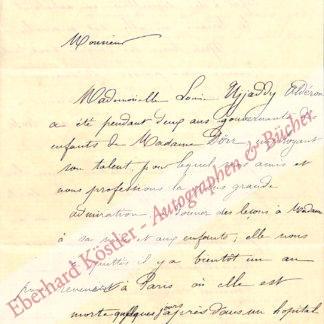 Monsieur
Mademoiselle Louise
a été pendant deux ans gouvernante des
enfants de Madame Dörr
son talent, pour lequel amis et
nous professions la plus grande
admiration, donner des leçons à Madame
à sa et aux enfants; elle nous
quittés il y a bientôt un an
pour revenir à Paris où elle est
morte quelques jours après dans un hôpital
Eberhard Köstler - Autographen & Bücher